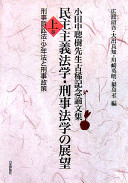 小田中聰樹先生古稀記念論文集
民主主義法学・刑事法学の展望
上巻
刑事訴訟法・少年法と刑事政策
広渡清吾・大出良知・川崎英明・福島至 編
日本評論社